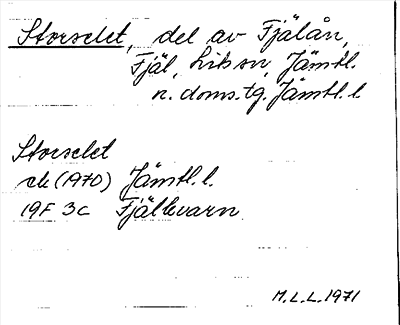 Storselet, del av Fjälån,
Fjäl, Lits sn, Jämtl.
n. doms.tg. Jämtl. l
Storselet
ek (1970) Jämtl. l.
19F 3c Fjälkvarn
M.L.L. 1971